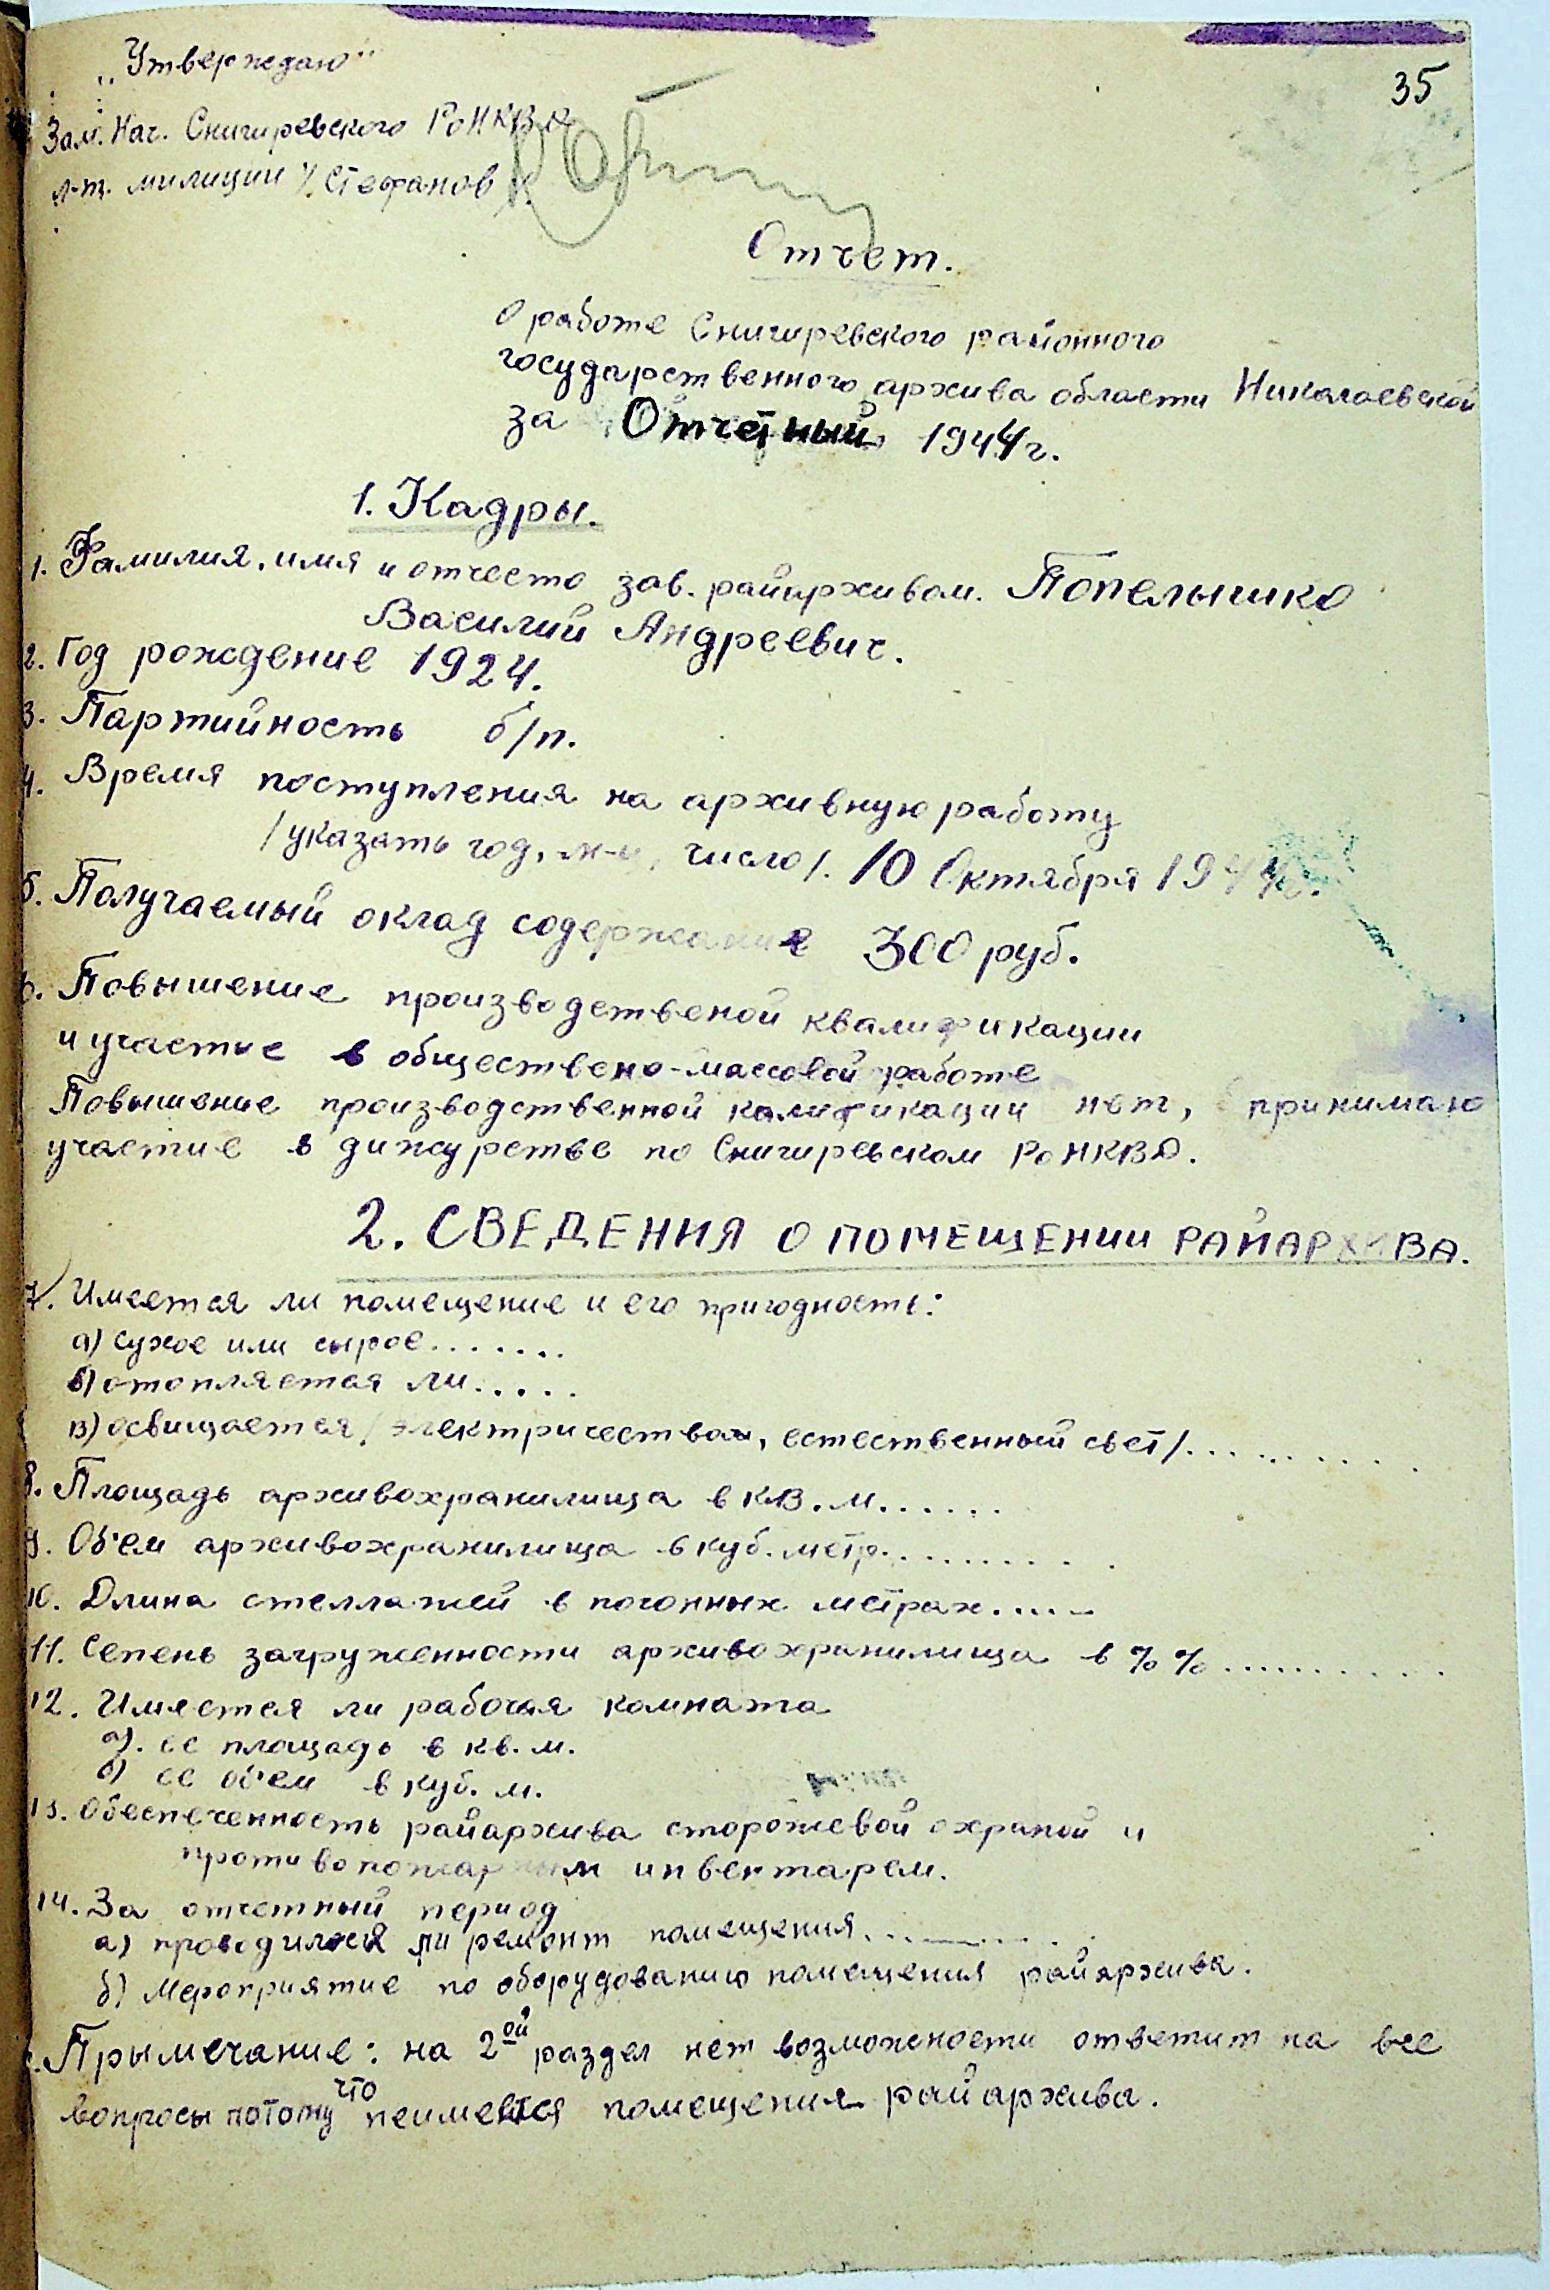 „Утверждаю“
35
Зам. Нач. Снигиревского РоНКВД
л-т. милиции /Стефанов/
Отчет.
О работе Снигиревского районного
государственного архива области Николаевской
за Отчетный 1944 г.
1. Кадры.
1. Фамилия, имя и отчесто зав. райархивом. Попельнико
Василий Андреевич.
2. Год рождение 1924.
3. Партийность б/п.
4. Время поступления на архивную работу
/указать год, м-ц, число/. 10 Октября 1944г.
5. Получаемый оклад содержание 300 руб.
6. Повышение производственой квалификации
и участие в обществено-массовой работе
Повышение производственной калификации нет, принимаю
участие в дижурстве по Снигиревском РоНКВД.
2. СВЕДЕНИЯ О ПОМЕЩЕНИИ РАЙАРХИВА.
7. Имеется ли помещение и его пригодность:
а) сухое или сырое.......
б) отопляется ли.....
в) освищается /электричеством, естественный свет/..........
8. Площадь архивохранилища в кв. м......
9. Об'ем архивохранилища в куб. метр..........
10. Длина стеллажей в погонных метрах.....
11. Сепень загруженности архивохранилища в %%..........
12. Имеется ли рабочая комната
а). ее площадь в кв. м.
б) ее об'ем в куб. м.
13. Обеспеченность райархива сторожевой охраной и
противопожарным инвентарем.
14. За отчетный период
а) проводился ли ремонт помещения..........
б) Мероприятие по оборудованию помещения райархива.
Прымечание: на 2ой раздел нет возможности ответит на все
вопросы потому что неимеется помещения райархива.